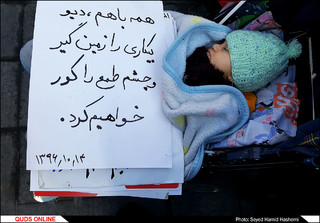 همه باهم، دیو
بیکاری را زمین گیر
و چشم طمع را کور
خواهیم کرد.
۱۳۹۶,۱۰,۱۴
QUDS ONLINE
Photo: Seyed Hamid Hashemi